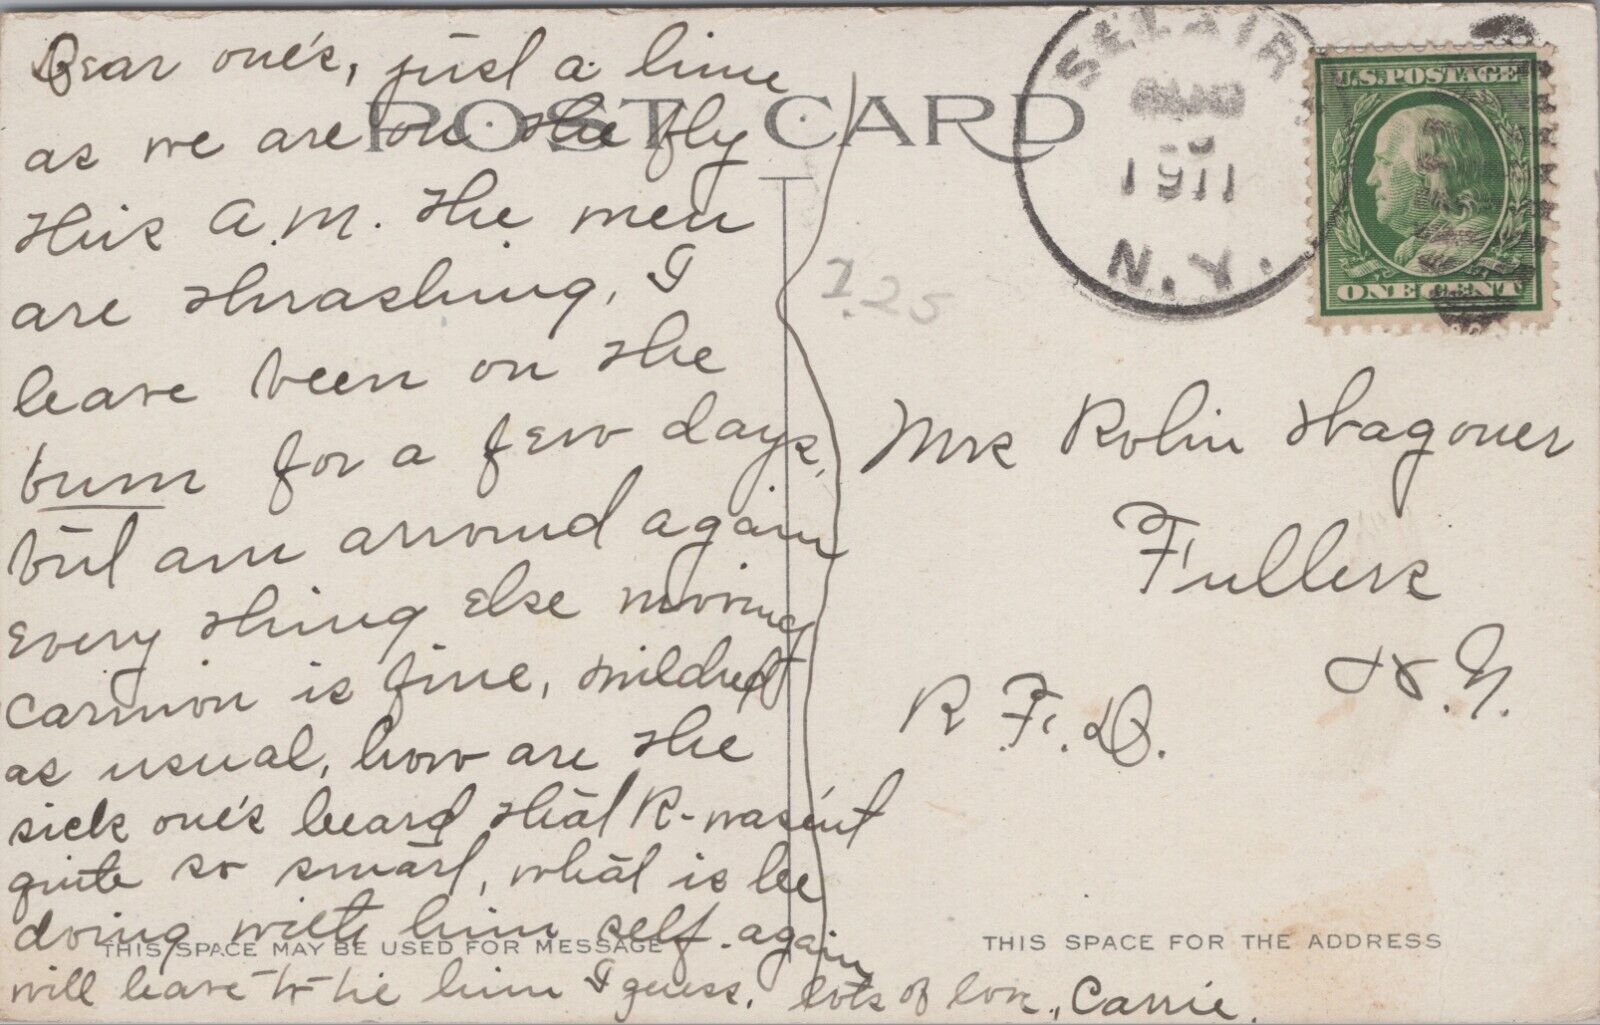 Dear one's, just a line
as we are on the fly
this A.M. the men
are thrashing, I
have been on the
bum for a few days,
but am around again
every thing else moving
Carmon is fine, Mildred
as usual, how are the
sick one's heard that R- wasn't
quite so smart, what is he
doing with him self. again
will have to tie him I guess. lots of love, Carrie.
POST CARD
1911
N.Y.
U.S. POSTAGE
ONE CENT
7.25
Mrs Robin Wagoner
Fullers
N.Y.
R.F.D.
THIS SPACE MAY BE USED FOR MESSAGE
THIS SPACE FOR THE ADDRESS